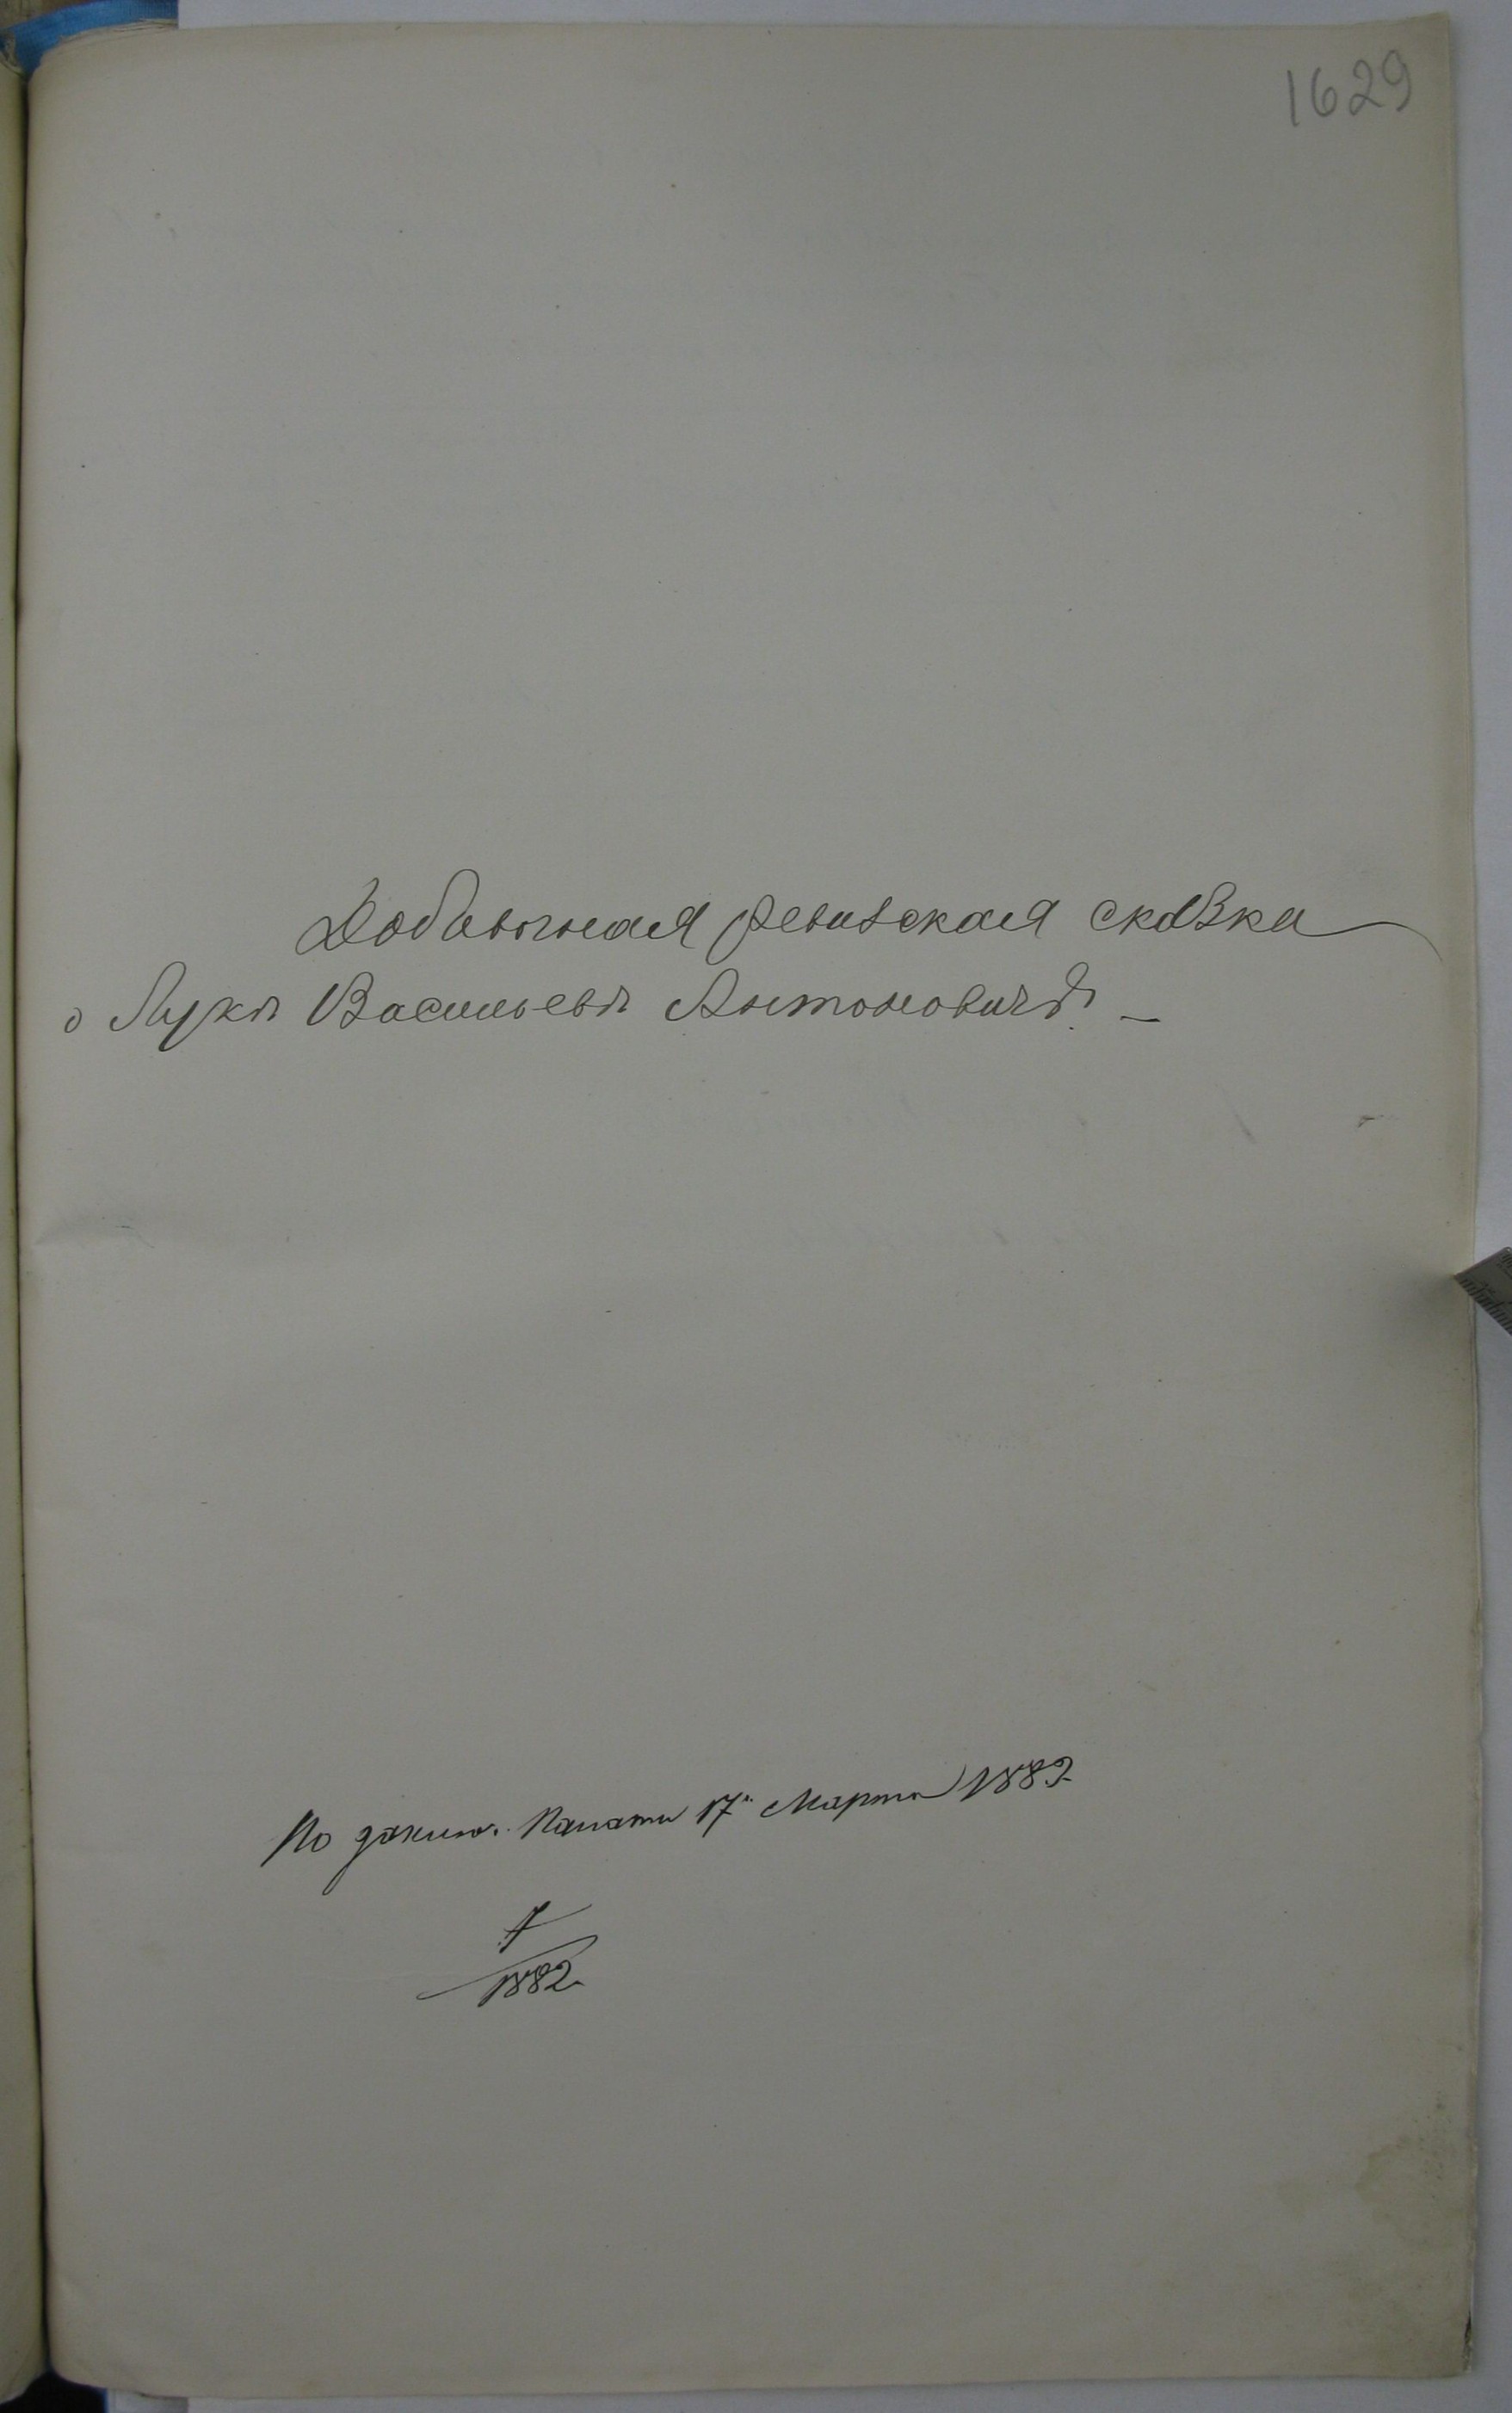 1629
Добавочная ревизская сказка
о Лукѣ Васильевѣ Антоновичѣ. —
По заключ. Палаты 17го Марта 1882
7
1882